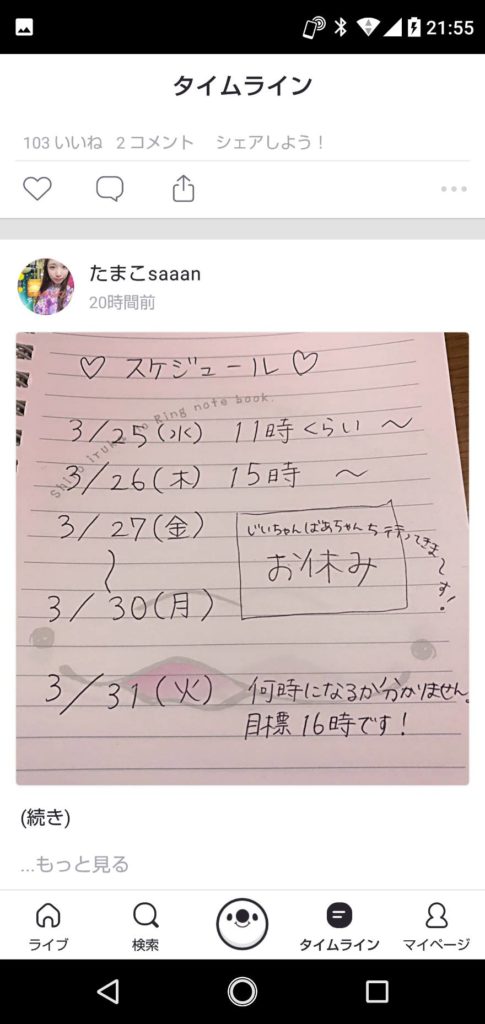 21:55
タイムライン
103 いいね 2 コメント シェアしよう！
たまこsaaan
20時間前
♡ スケジュール ♡
Shiro iruka no Ring note book.
3/25(水) 11時くらい 〜
3/26(木) 15時 〜
3/27(金)
〜
3/30(月)
じいちゃんばあちゃんち行ってきま〜す！
お休み
3/31(火) 何時になるか分かりません。
目標16時です！
(続き)
...もっと見る
ライブ 検索 タイムライン マイページ